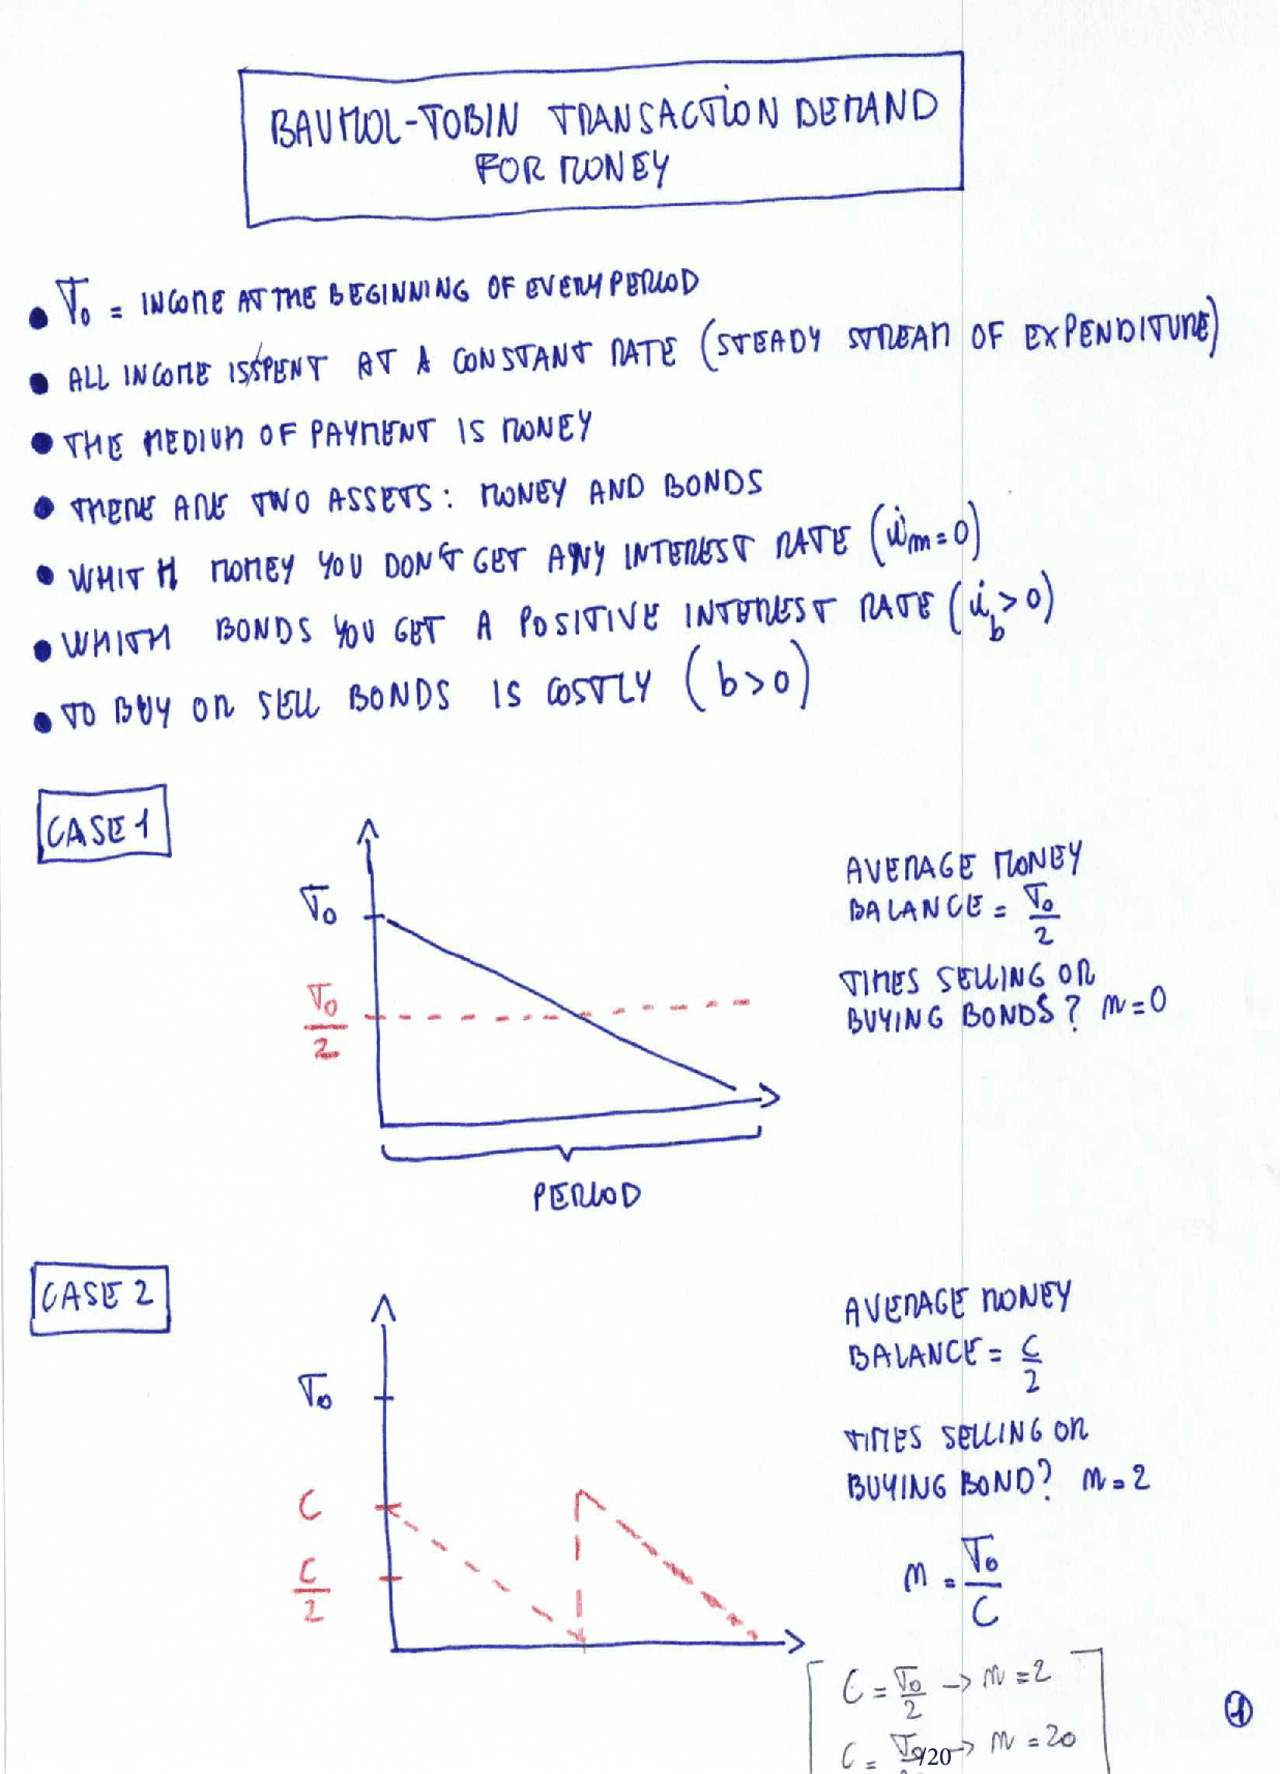 BAUMOL-TOBIN TRANSACTION DEMAND
FOR MONEY
• T₀ = INCOME AT THE BEGINNING OF EVERY PERIOD
• ALL INCOME IS SPENT AT A CONSTANT RATE (STEADY STREAM OF EXPENDITURE)
• THE MEDIUM OF PAYMENT IS MONEY
• THERE ARE TWO ASSETS: MONEY AND BONDS
• WHITH MONEY YOU DON'T GET ANY INTEREST RATE (i_m = 0)
• WHITH BONDS YOU GET A POSITIVE INTEREST RATE (i_b > 0)
• TO BUY OR SELL BONDS IS COSTLY (b > 0)
CASE 1
T₀
T₀/2
PERIOD
AVERAGE MONEY
BALANCE = T₀/2
TIMES SELLING OR
BUYING BONDS? n = 0
CASE 2
T₀
C
C/2
AVERAGE MONEY
BALANCE = C/2
TIMES SELLING OR
BUYING BOND? n = 2
n = T₀/C
C = T₀/2 -> n = 2
C = T₀/20 -> n = 20
1